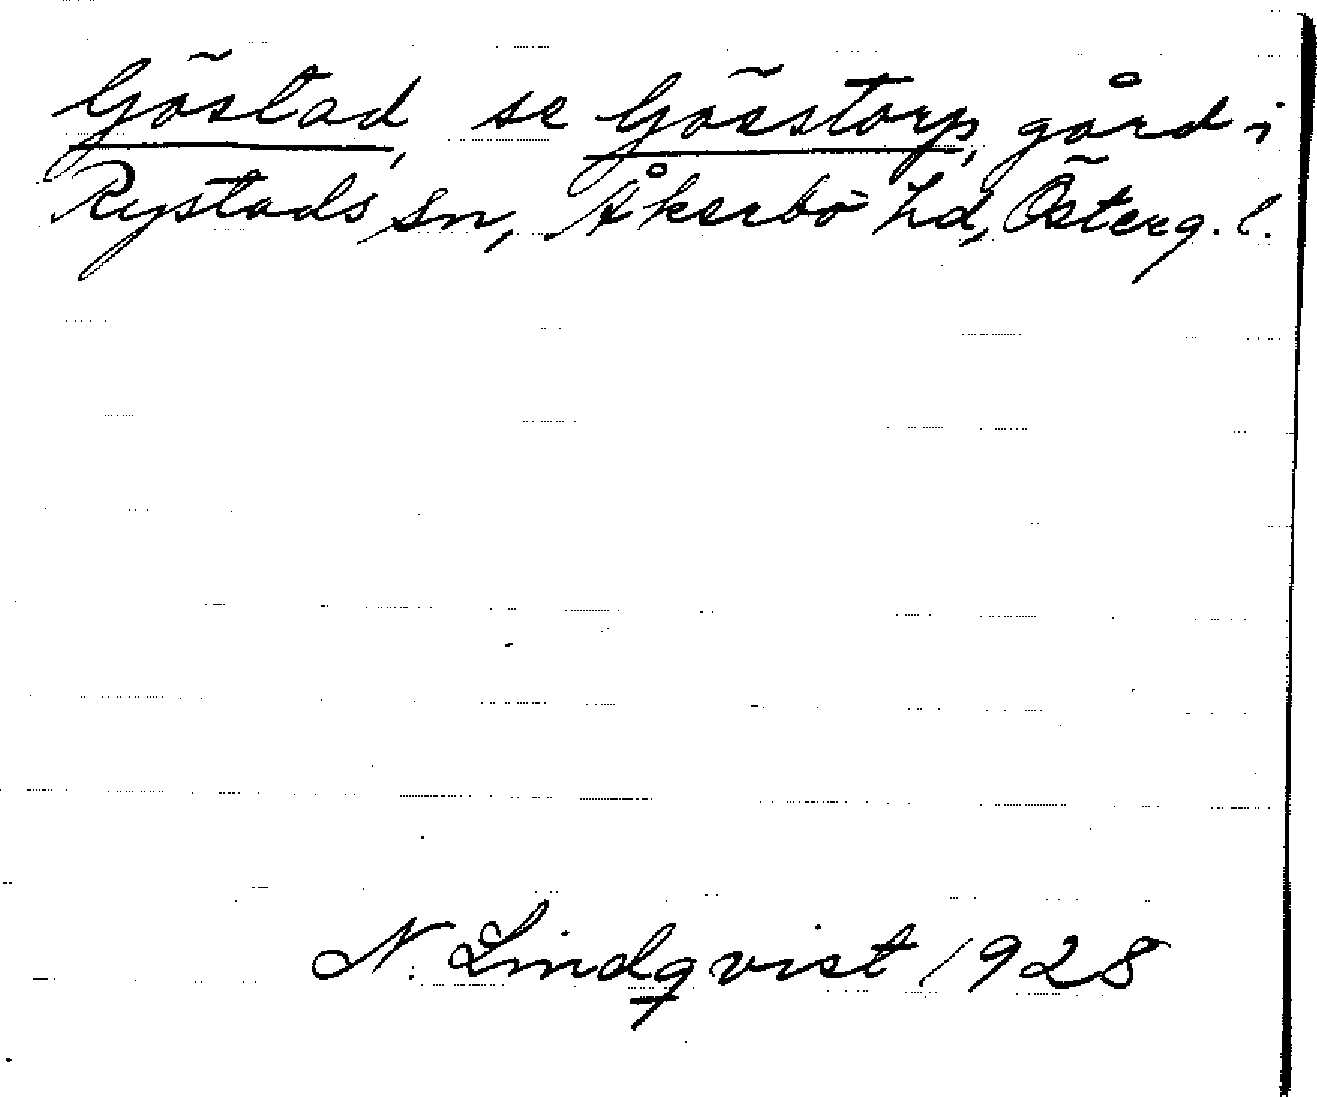 Göstad, se Göxstorp, gård i
Rystads sn, Åkerbo hd, Österg. l.
N. Lindqvist 1928